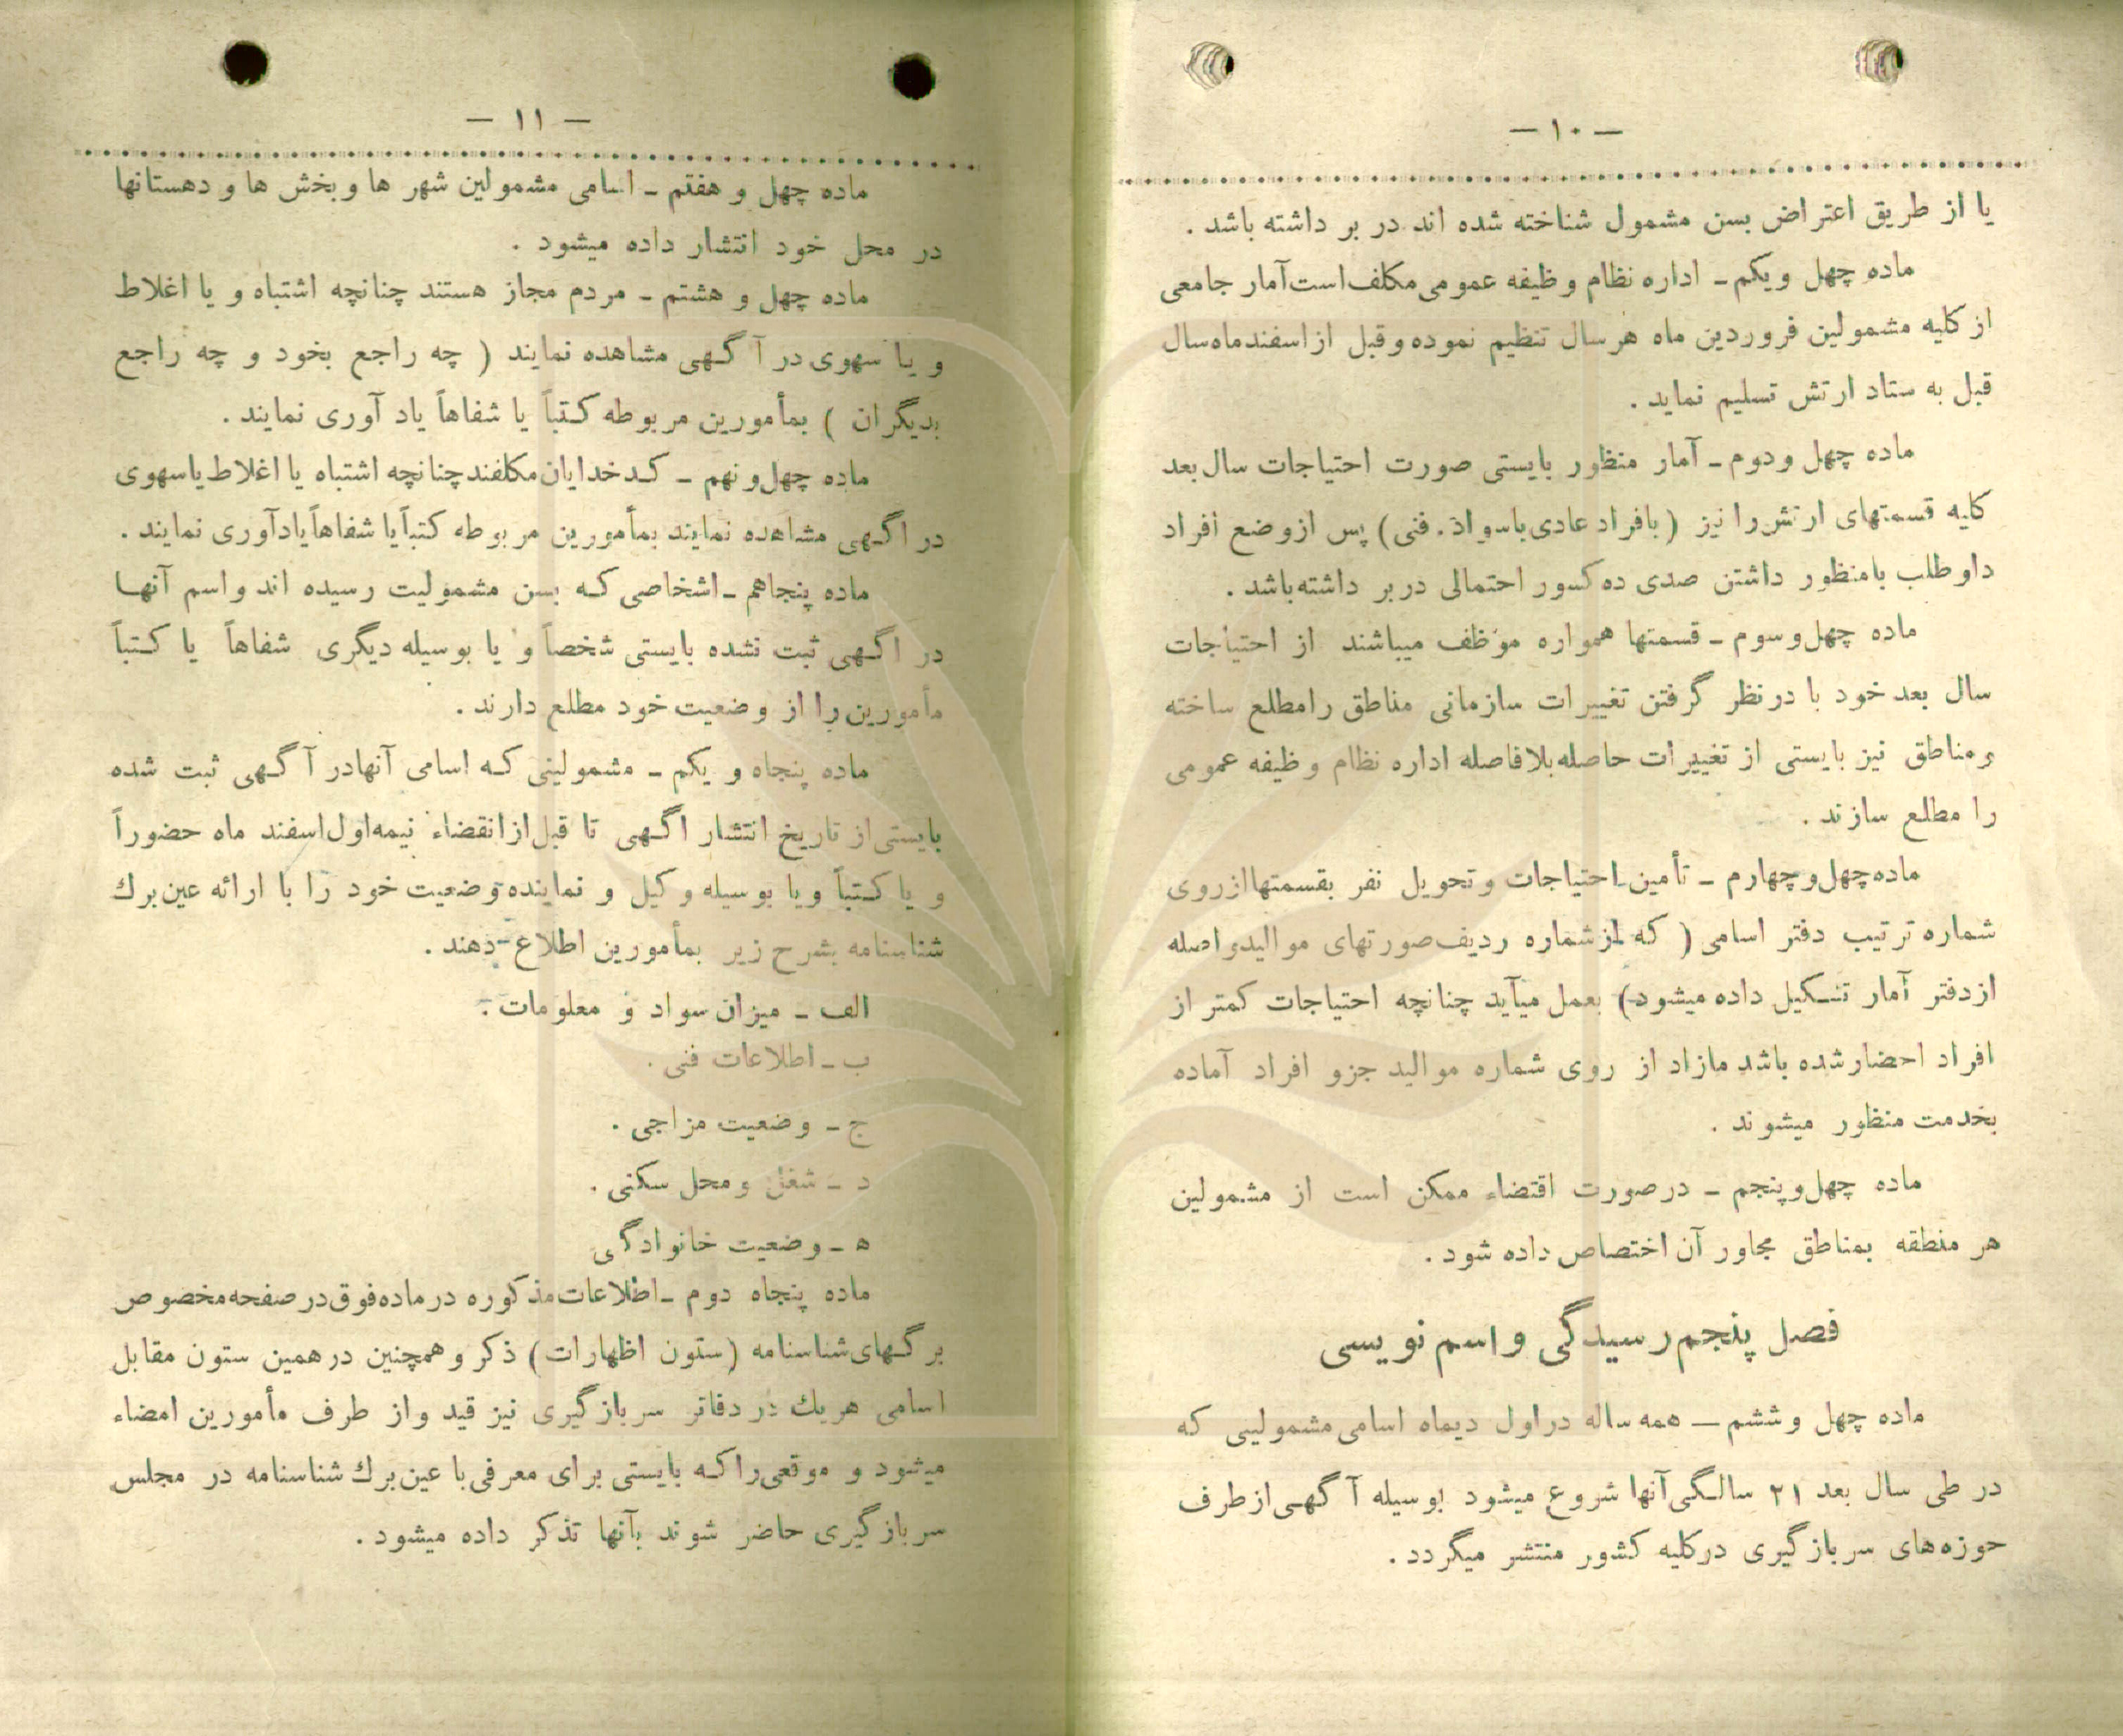 — ۱۰ —
یا از طریق اعتراض بسن مشمول شناخته شده اند در بر داشته باشد .
ماده چهل ویکم ـ اداره نظام وظیفه عمومی مکلف است آمار جامعی
از کلیه مشمولین فروردین ماه هرسال تنظیم نموده وقبل از اسفندماه سال
قبل به ستاد ارتش تسلیم نماید .
ماده چهل ودوم ـ آمار منظور بایستی صورت احتیاجات سال بعد
کلیه قسمتهای ارتش را نیز ( بافراد عادی باسواد . فنی ) پس ازوضع افراد
داوطلب بامنظور داشتن صدی ده کسور احتمالی دربر داشته باشد .
ماده چهل وسوم ـ قسمتها همواره موظف میباشند از احتیاجات
سال بعد خود با درنظر گرفتن تغییرات سازمانی مناطق رامطلع ساخته
ومناطق نیز بایستی از تغییرات حاصله بلافاصله اداره نظام وظیفه عمومی
را مطلع سازند .
ماده چهل وچهارم ـ تأمین احتیاجات وتحویل نفر بقسمتها ازروی
شماره ترتیب دفتر اسامی ( که ازشماره ردیف صورتهای موالید واصله
ازدفتر آمار تشکیل داده میشود ) بعمل میآید چنانچه احتیاجات کمتر از
افراد احضارشده باشد مازاد از روی شماره موالید جزو افراد آماده
بخدمت منظور میشوند .
ماده چهل وپنجم ـ درصورت اقتضاء ممکن است از مشمولین
هر منطقه بمناطق مجاور آن اختصاص داده شود .
فصل پنجم رسیدگی واسم نویسی
ماده چهل وششم — همه ساله دراول دیماه اسامی مشمولینی که
در طی سال بعد ۲۱ سالگی آنها شروع میشود بوسیله آگهی ازطرف
حوزه های سربازگیری درکلیه کشور منتشر میگردد .
— ۱۱ —
ماده چهل و هفتم ـ اسامی مشمولین شهر ها وبخش ها و دهستانها
در محل خود انتشار داده میشود .
ماده چهل و هشتم ـ مردم مجاز هستند چنانچه اشتباه و یا اغلاط
و یا سهوی در آگهی مشاهده نمایند ( چه راجع بخود و چه راجع
بدیگران ) بمأمورین مربوطه کتباً یا شفاهاً یاد آوری نمایند .
ماده چهل ونهم ـ کدخدایان مکلفند چنانچه اشتباه یا اغلاط یاسهوی
در اگهی مشاهده نمایند بمأمورین مربوطه کتباً یا شفاهاً یادآوری نمایند .
ماده پنجاهم ـ اشخاصی که بسن مشمولیت رسیده اند واسم آنها
در اگهی ثبت نشده بایستی شخصاً و یا بوسیله دیگری شفاهاً یا کتباً
مأمورین را از وضعیت خود مطلع دارند .
ماده پنجاه و یکم ـ مشمولینی که اسامی آنهادر آگهی ثبت شده
بایستی از تاریخ انتشار اگهی تا قبل ازانقضاء نیمه اول اسفند ماه حضوراً
و یا کتباً ویا بوسیله وکیل و نماینده وضعیت خود را با ارائه عین برك
شناسنامه بشرح زیر بمأمورین اطلاع دهند .
الف ـ میزان سواد و معلومات .
ب ـ اطلاعات فنی .
ج ـ وضعیت مزاجی .
د ـ شغل ومحل سکنی .
ه ـ وضعیت خانوادگی
ماده پنجاه دوم ـ اطلاعات مذکوره درماده فوق درصفحه مخصوص
برگهای شناسنامه ( ستون اظهارات ) ذکر وهمچنین درهمین ستون مقابل
اسامی هریك در دفاتر سربازگیری نیز قید واز طرف مأمورین امضاء
میشود و موقعی راکه بایستی برای معرفی با عین برك شناسنامه در مجلس
سربازگیری حاضر شوند بآنها تذکر داده میشود .